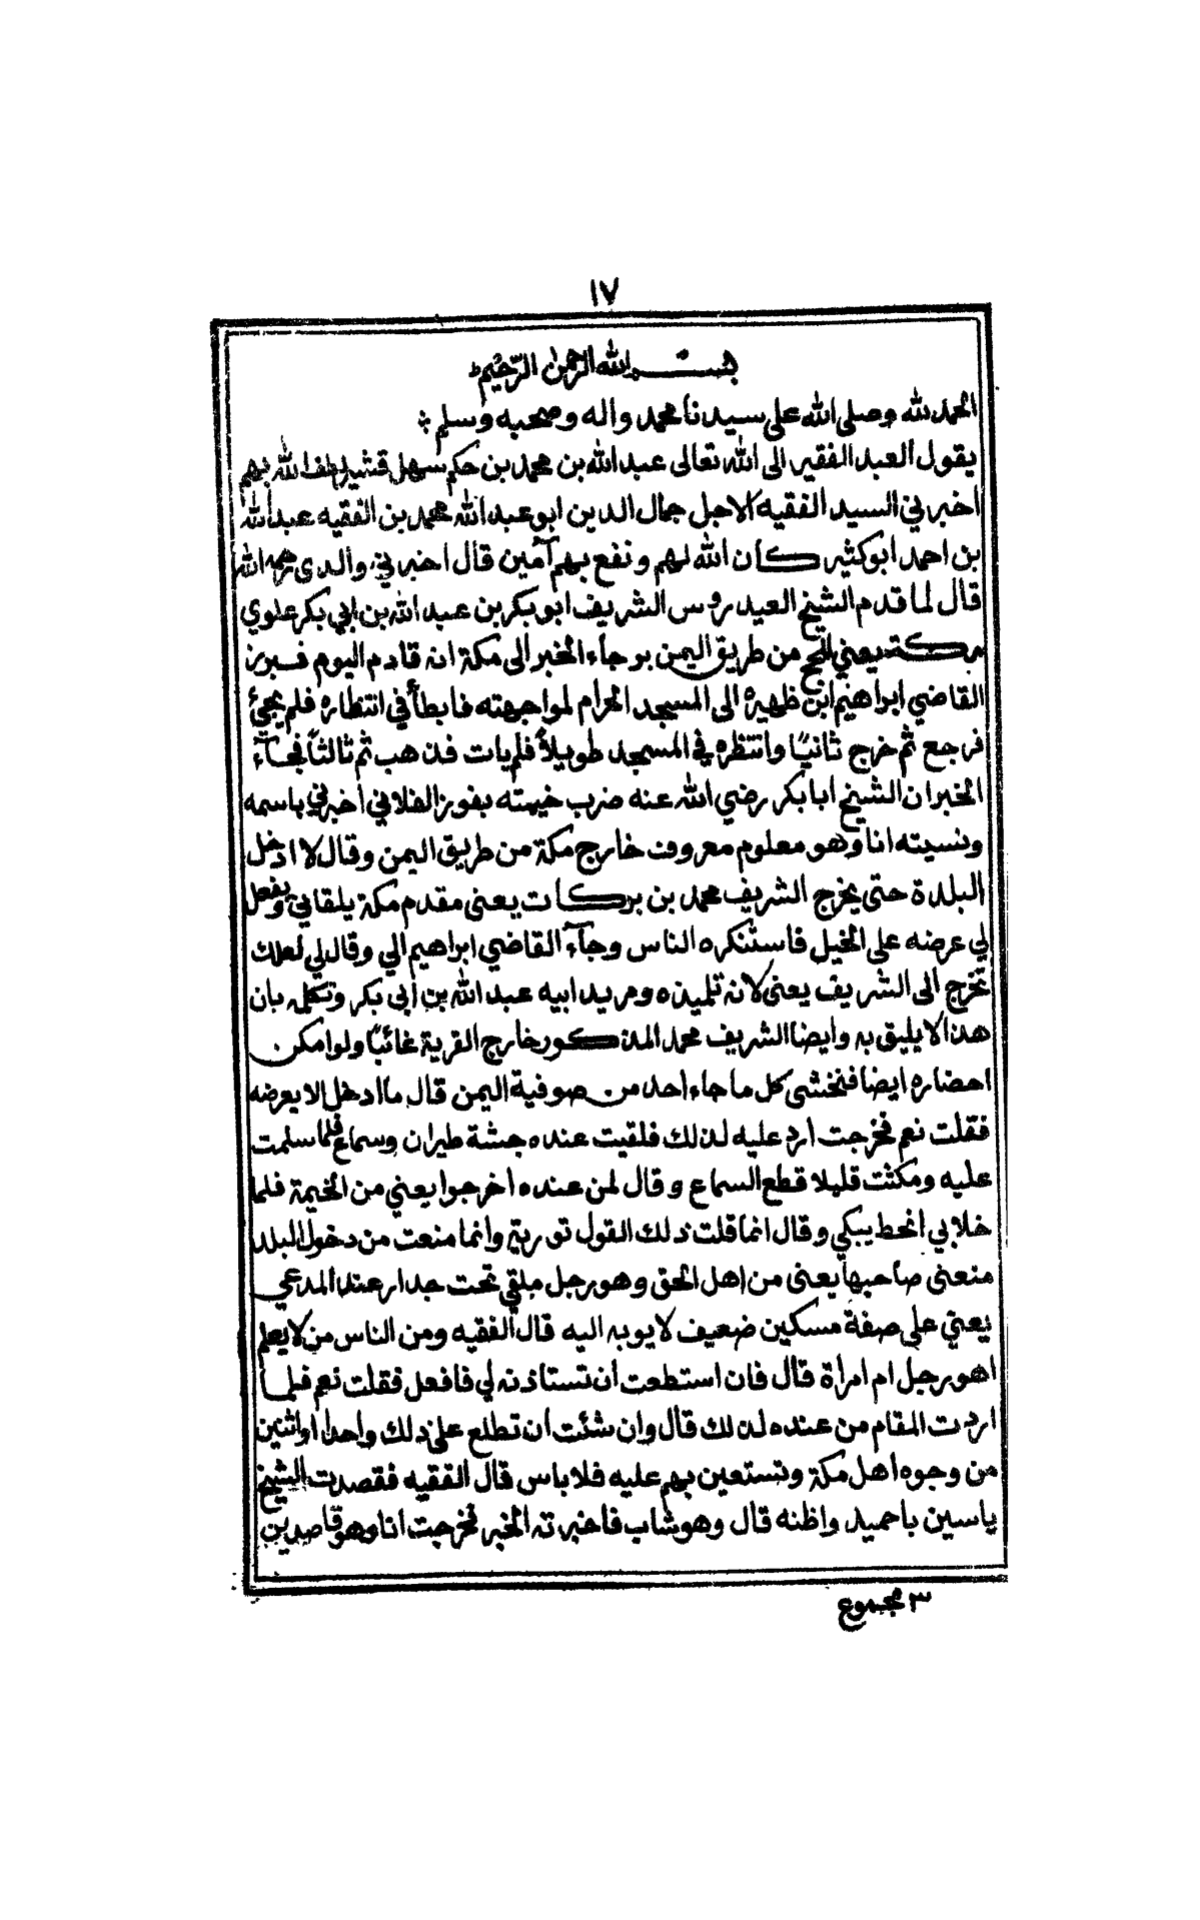 ١٧
بسم الله الرحمن الرحيم
الحمد لله وصلى الله على سيدنا محمد واله وصحبه وسلم
يقول العبد الفقير الى الله تعالى عبد الله بن محمد بن حكم سهل قشير لطف الله بهم
اخبرني السيد الفقيه الاجل جمال الدين ابو عبد الله محمد بن الفقيه عبد الله
بن احمد ابوكثير كان الله لهم ونفع بهم آمين قال اخبرني والدى رحمه الله
قال لما قدم الشيخ العيدروس الشريف ابو بكر بن عبد الله بن ابي بكر علوي
مكة يعني للحج من طريق اليمن بر جاء الخبر الى مكة انه قادم اليوم فبرز
القاضي ابراهيم ابن ظهيره الى المسجد الحرام لمواجهته فابطأ في انتظاره فلم يجئ
فرجع ثم خرج ثانيًا وانتظره في المسجد طويلاً فلم يات فذهب ثم ثالثاً فجاء
الخبر ان الشيخ ابا بكر رضي الله عنه ضرب خيمته بفوز الفلاني أخبرني باسمه
ونسيته انا وهو معلوم معروف خارج مكة من طريق اليمن وقال لا ادخل
البلدة حتى يخرج الشريف محمد بن بركات يعنى مقدم مكة يلقاني ويفعل
لي عرضه على الخيل فاستنكره الناس وجآء القاضي ابراهيم الي وقال لي لعلك
تخرج الى الشريف يعنى لانه تلميذه ومريد ابيه عبد الله بن ابي بكر وتكلمه بان
هذا لا يليق به وايضا الشريف محمد المذكور خارج القرية غائبًا ولو امكن
احضاره ايضا فنخشى كل ما جاء احد من صوفية اليمن قال ما ادخل الا بعرضه
فقلت نعم فخرجت ارد عليه لذلك فلقيت عنده جشة طيران وسماع فلما سلمت
عليه ومكثت قليلا قطع السماع وقال لمن عنده اخرجوا يعني من الخيمة فلما
خلا بي انحط يبكي وقال انما قلت ذلك القول تورية وانما منعت من دخول البلد
منعنى صاحبها يعنى من اهل الحق وهو رجل ملقي تحت جدار عند المدعى
يعني على صفة مسكين ضعيف لا يوبه اليه قال الفقيه ومن الناس من لا يعلم
اهو رجل ام امراة قال فان استطعت ان تستاذنه لي فافعل فقلت نعم فلما
اردت المقام من عنده لذلك قال وان شئت ان تطلع على ذلك واحدا او اثنين
من وجوه اهل مكة وتستعين بهم عليه فلا باس قال الفقيه فقصدت الشيخ
ياسين باحميد واظنه قال وهو شاب فاخبرته الخبر فخرجت انا وهو قاصدين
٣ مجموع